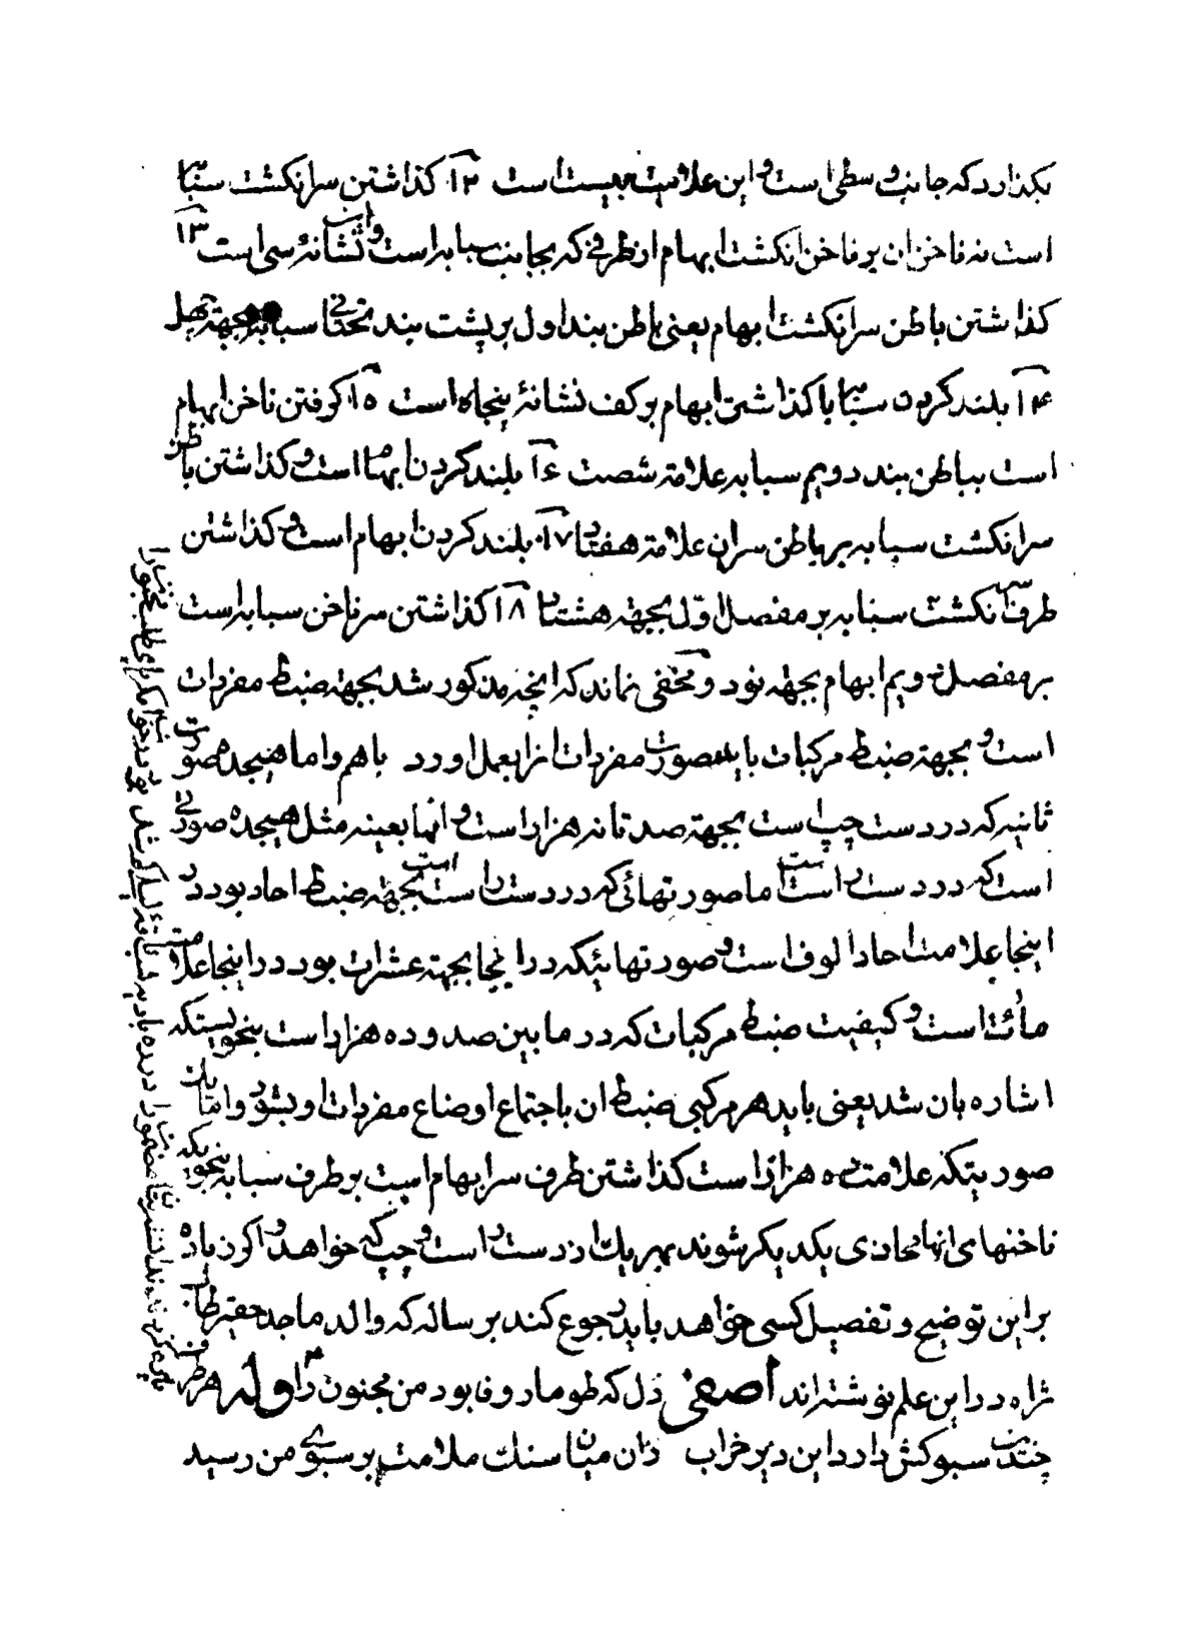 بکذارد که جانب وسطی است و این علامت بیست است ۱۲ کذاشتن سر انکشت سبابه
است نه ناخن ان بر ناخن انکشت ابهام از طرفی که بجانب سبابه است و این نشانهٔ سی است ۱۳
کذاشتن باطن سر انکشت ابهام یعنی باطن بند اول بر پشت بند تحتانی سبابه بجهة چهل
۱۴ بلند کردن سبابه با کذاشتن ابهام بر کف نشانهٔ پنجاه است ۱۵ کرفتن ناخن ابهام
است بباطن بند دویم سبابه علامة شصت ۱۶ بلند کردن ابهام است و کذاشتن باطن
سر انکشت سبابه بر باطن سر ان علامة هفتاد ۱۷ بلند کردن ابهام است و کذاشتن
طرف سر انکشت سبابه بر مفصل اوّل بجهة هشتاد ۱۸ کذاشتن سر ناخن سبابه است
بر مفصل دویم ابهام بجهة نود و مخفی نماند که انچه مذکور شد بجهة ضبط مفردات
است و بجهة ضبط مرکبات باید صورت مفردات انرا بعمل اورد باهم و اما هیجده صورت
ثانیه که در دست چپ است بجهة صد تا نه هزار است و انها بعینه مثل هیجده صورتی
است که در دست راست است اما صورتهائی که در دست راست بجهة ضبط احاد بود در
اینجا علامت احاد الوف است و صورتهائیکه در اینجا بجهة عشرات بود در اینجا علامت
مأت است و کیفیت ضبط مرکبات که در مابین صد و ده هزار است بنحویستکه
اشاره بان شد یعنی باید هر مرکبی ضبط ان باجتماع اوضاع مفردات او بشود و اما بیان
صورتیکه علامت ده هزار است کذاشتن طرف سر ابهام است بر طرف سبابه بنحویکه
ناخنهای انها محاذی یکدیکر شوند بهر یك از دست راست و چپ که خواهد و اکر زیاده
بر این توضیح و تفصیل کسی خواهد باید رجوع کند برساله که والد ماجد حقیر طاب
ثراه در این علم نوشته اند آصفی دل که طومار وفا بود من مجنون را وله هر طرف
چندین سبوکش دارد این دیر خراب زان میان سنك ملامت بر سبوی من رسید